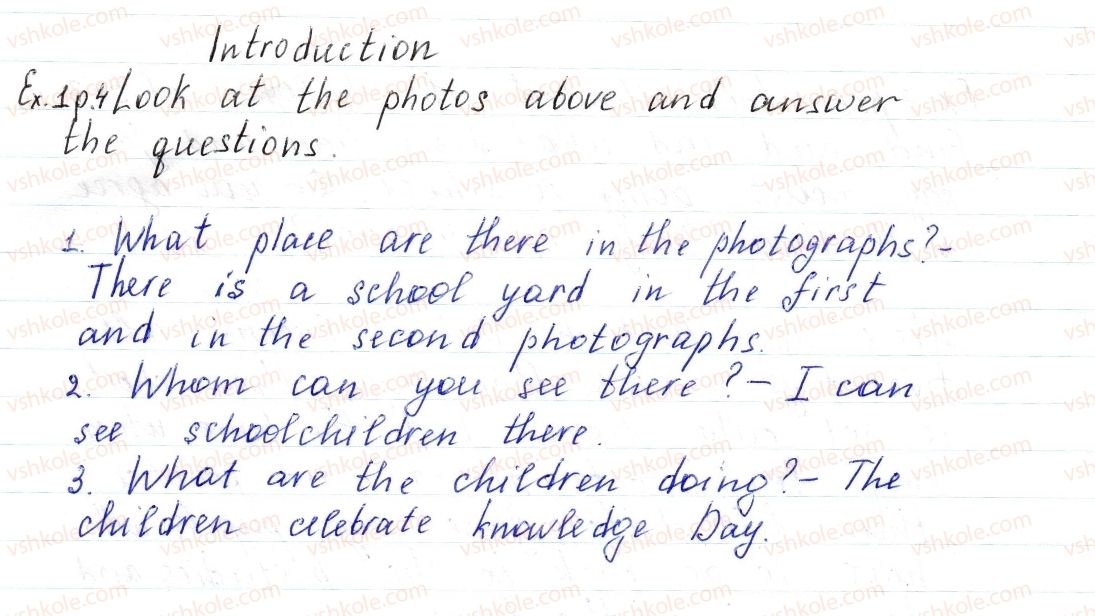 Introduction
Ex.1p.4 Look at the photos above and answer
the questions.
1. What place are there in the photographs?-
There is a school yard in the first
and in the second photographs.
2. Whom can you see there? - I can
see schoolchildren there.
3. What are the children doing? - The
children celebrate knowledge Day.
vshkole.com